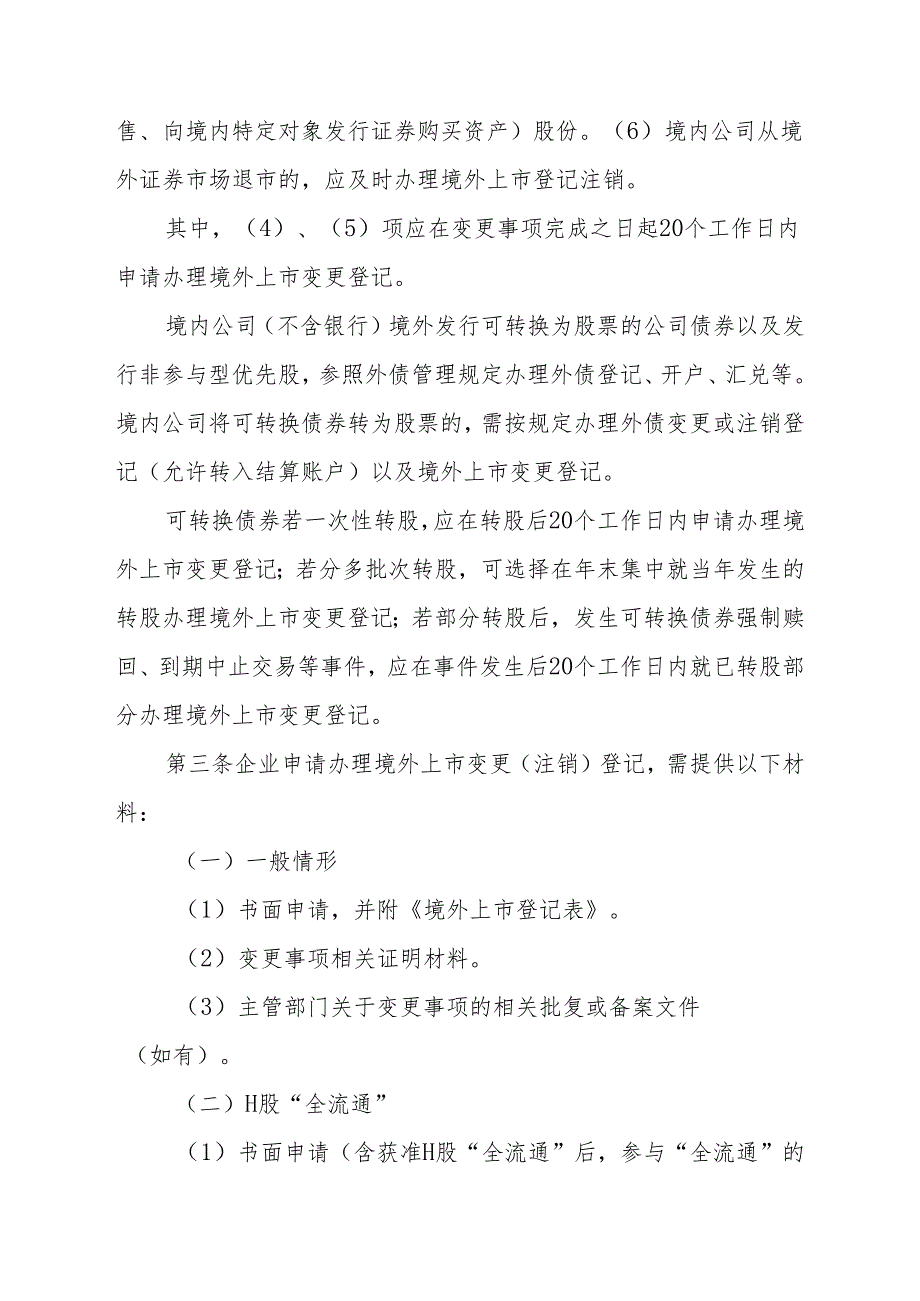 售、向境内特定对象发行证券购买资产）股份。（6）境内公司从境
外证券市场退市的，应及时办理境外上市登记注销。
其中，（4）、（5）项应在变更事项完成之日起20个工作日内
申请办理境外上市变更登记。
境内公司（不含银行）境外发行可转换为股票的公司债券以及发
行非参与型优先股，参照外债管理规定办理外债登记、开户、汇兑等。
境内公司将可转换债券转为股票的，需按规定办理外债变更或注销登
记（允许转入结算账户）以及境外上市变更登记。
可转换债券若一次性转股，应在转股后20个工作日内申请办理境
外上市变更登记；若分多批次转股，可选择在年末集中就当年发生的
转股办理境外上市变更登记；若部分转股后，发生可转换债券强制赎
回、到期中止交易等事件，应在事件发生后20个工作日内就已转股部
分办理境外上市变更登记。
第三条企业申请办理境外上市变更（注销）登记，需提供以下材
料：
（一）一般情形
（1）书面申请，并附《境外上市登记表》。
（2）变更事项相关证明材料。
（3）主管部门关于变更事项的相关批复或备案文件
（如有）。
（二）H股“全流通”
（1）书面申请（含获准H股“全流通”后，参与“全流通”的